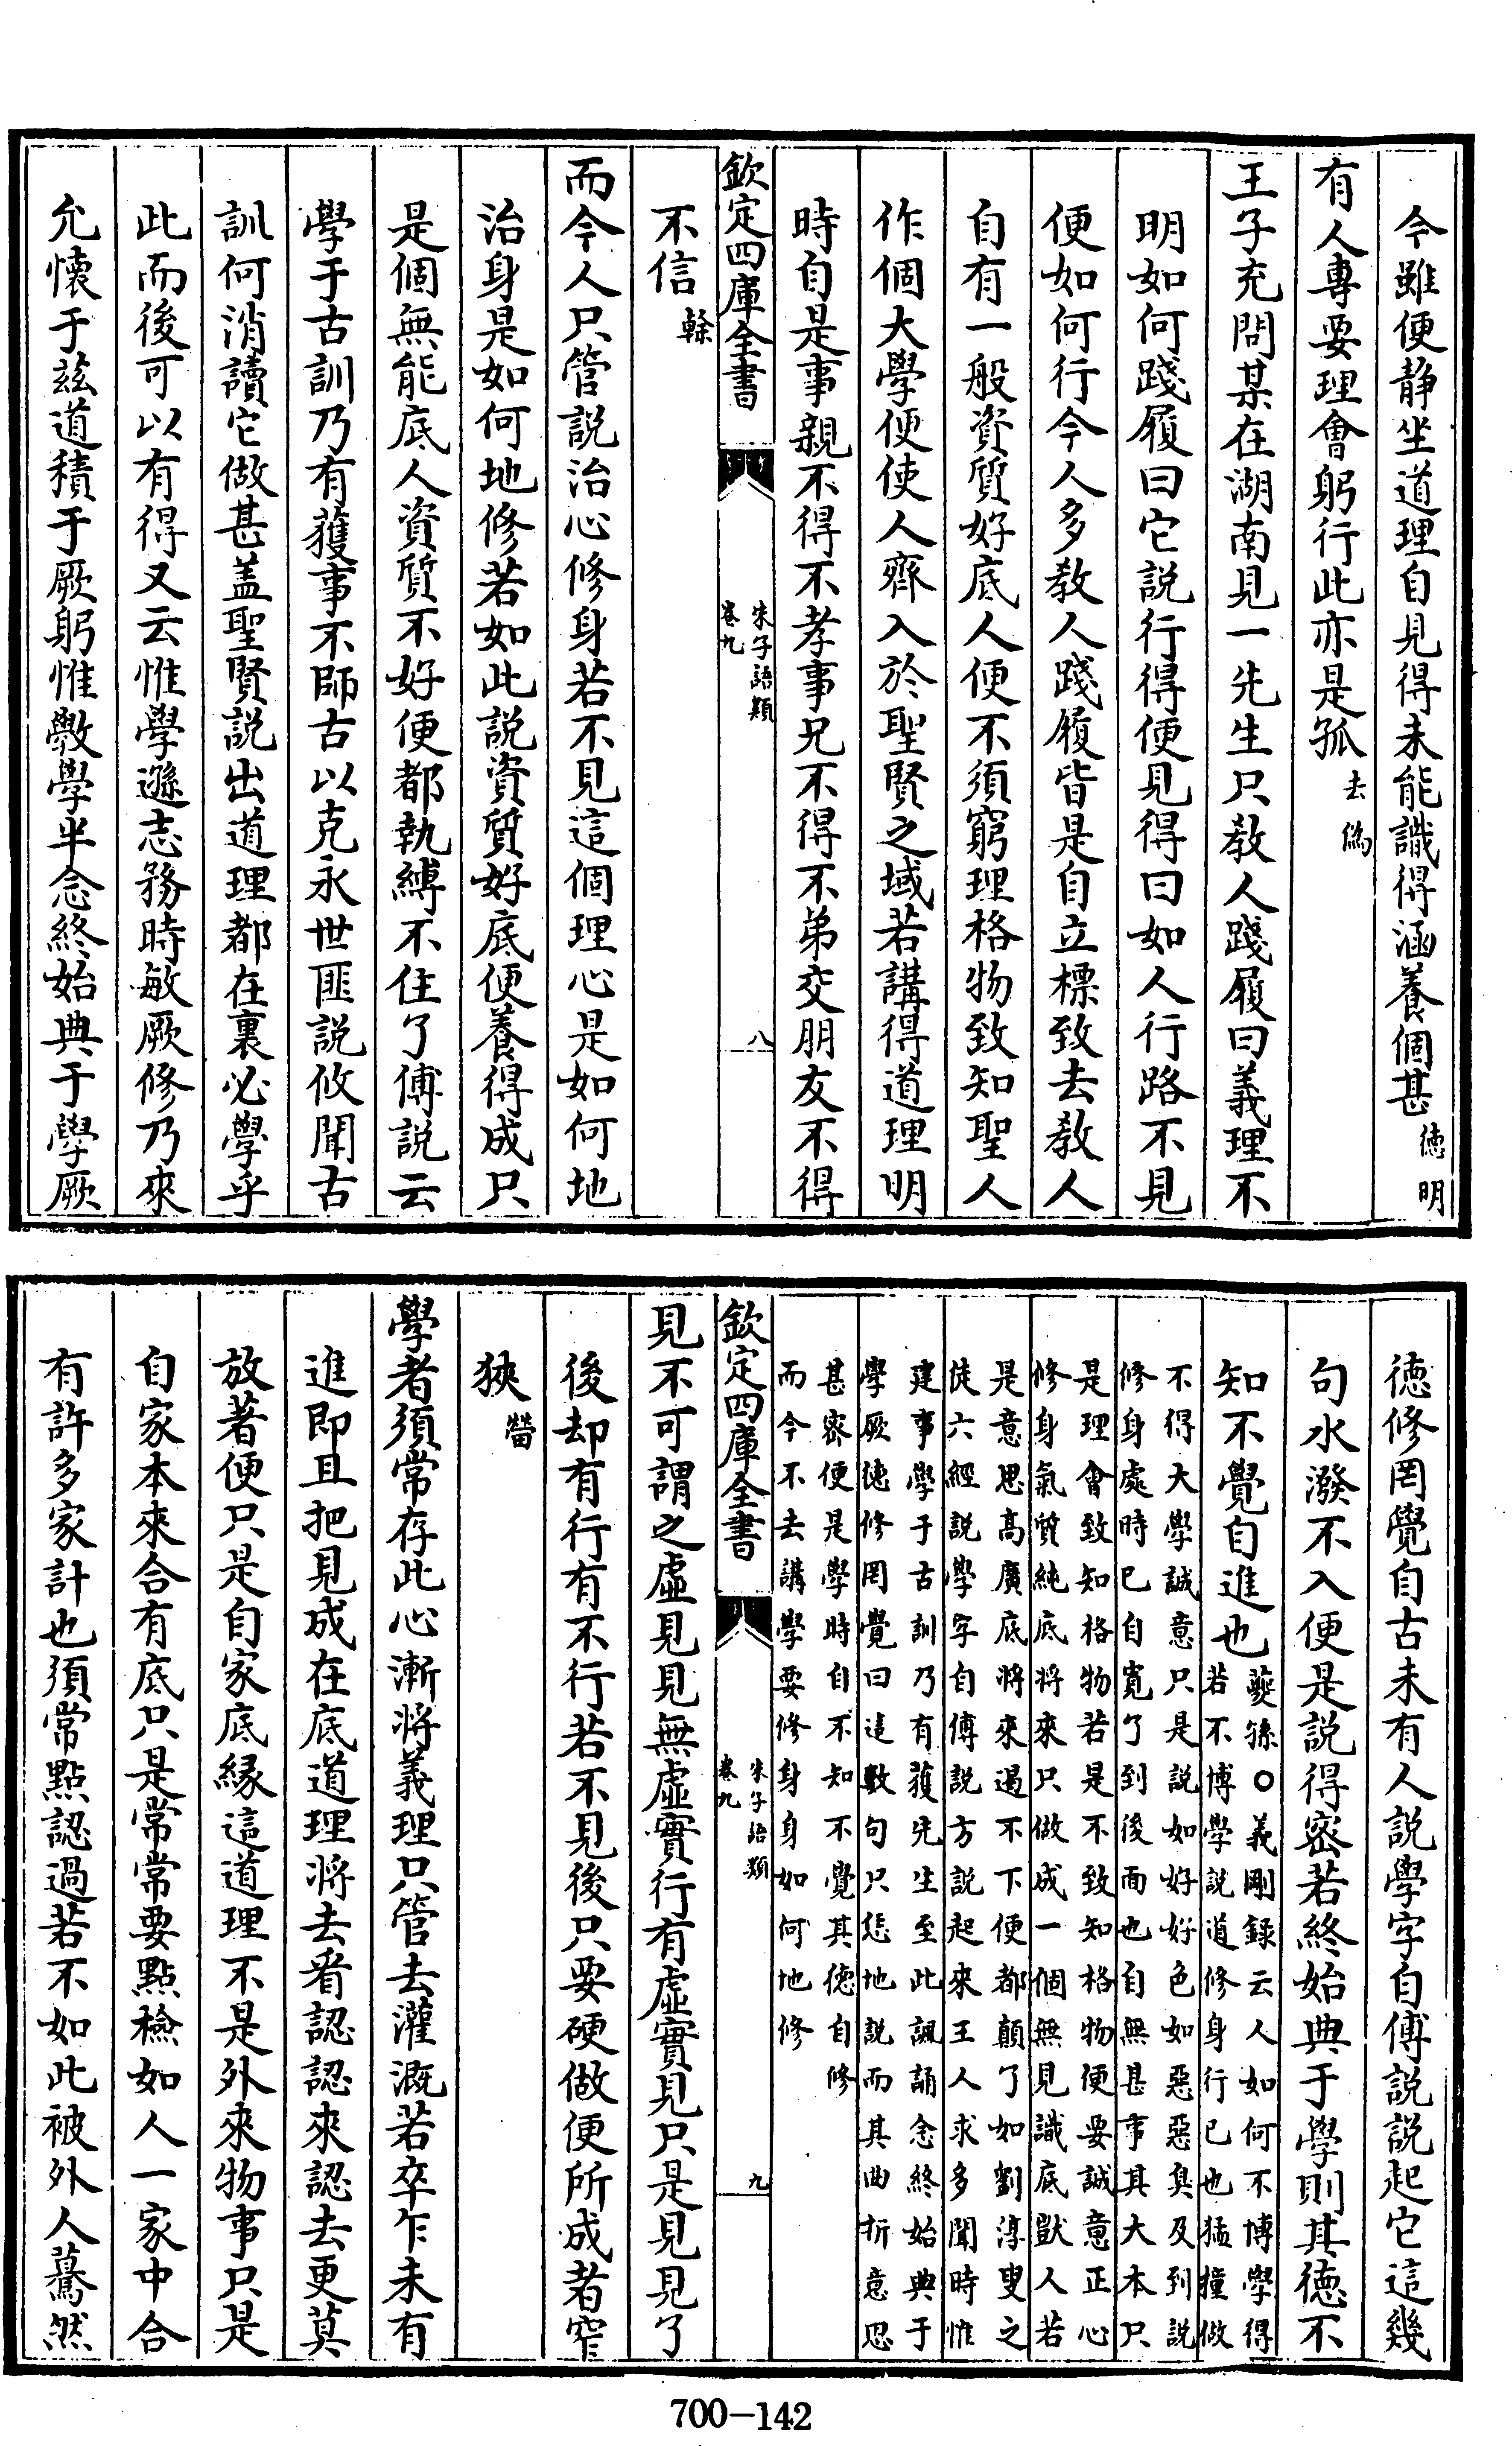 今雖便静坐道理自見得未能識得涵養個甚德明
有人專要理會躬行此亦是孤去偽
王子充問某在湖南見一先生只教人踐履曰義理不
明如何踐履曰它説行得便見得曰如人行路不見
便如何行今人多教人踐履皆是自立標致去教人
自有一般資質好底人便不須窮理格物致知聖人
作個大學便使人齊入於聖賢之域若講得道理明
時自是事親不得不孝事兄不得不弟交朋友不得
欽定四庫全書
朱子語類
卷九
八
不信榦
而今人只管説治心修身若不見這個理心是如何地
治身是如何地修若如此説資質好底便養得成只
是個無能底人資質不好便都執縛不住了傅説云
學于古訓乃有獲事不師古以克永世匪説攸聞古
訓何消讀它做甚盖聖賢説出道理都在裏必學乎
此而後可以有得又云惟學遜志務時敏厥修乃來
允懷于兹道積于厥躬惟斆學半念終始典于學厥
德修罔覺自古未有人説學字自傅説説起它這幾
句水潑不入便是説得宻若終始典于學則其德不
知不覺自進也
夔孫○義剛録云人如何不博學得
若不博學説道修身行已也猛撞做
不得大學誠意只是説如好好色如惡惡臭及到説
修身處時已自寛了到後面也自無甚事其大本只
是理會致知格物若是不致知格物便要誠意正心
修身氣質純底將來只做成一個無見識底獃人若
是意思高廣底將來遏不下便都顛了如劉淳叟之
徒六經説學字自傅説方説起來王人求多聞時惟
建事學于古訓乃有獲先生至此諷誦念終始典于
學厥德修罔覺曰這數句只恁地説而其曲折意思
甚宻便是學時自不知不覺其德自修
而今不去講學要修身身如何地修
欽定四庫全書
朱子語類
卷九
九
見不可謂之虚見見無虚實行有虚實見只是見見了
後却有行有不行若不見後只要硬做便所成者窄
狹㽦
學者須常存此心漸將義理只管去灌溉若卒乍未有
進即且把見成在底道理將去看認認來認去更莫
放著便只是自家底緣這道理不是外來物事只是
自家本來合有底只是常常要點檢如人一家中合
有許多家計也須常點認過若不如此被外人驀然
700-142